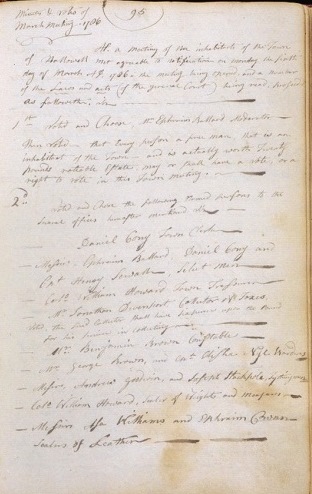 Minutes & Votes of
March Meeting 1786
96
At a meeting of the inhabitants of the Town
of Hallowell met agreeable to notification on monday the sixth
day of March A.D. 1786 the meeting being opened and a number
of the Laws and acts (of the general Court) being read, proceed
as followeth,
1st Voted and Choose Mr Ephraim Ballard Moderator
Then Voted that every person a free man, that is an
inhabitant of the Town and is actually worth Twenty
pounds ratable Estate, may or shall have a vote, or a
right to vote in this Town meeting
2d Voted and Chose the following Named persons to the
Several offices hereafter mentioned
Daniel Cony Town Clerk
Messrs Ephraim Ballard Daniel Cony and
Capt Henry Sewall, Select Men
Colo William Howard Town Treasurer
Mr Jonathan Davenport Collector of Taxes
Voted the said Collector shall have
for his in collecting
Mr Benjamin Brown Constable
Mr George Brown, and Capt Elisha Nye Wardens
Messrs Andrew Goodwin, and Joseph Stackpole, tythingmen
Colo William Howard, Sealer of Weights and measures
Messrs Asa Withams and Ephraim Cowan
Sealers of Leather